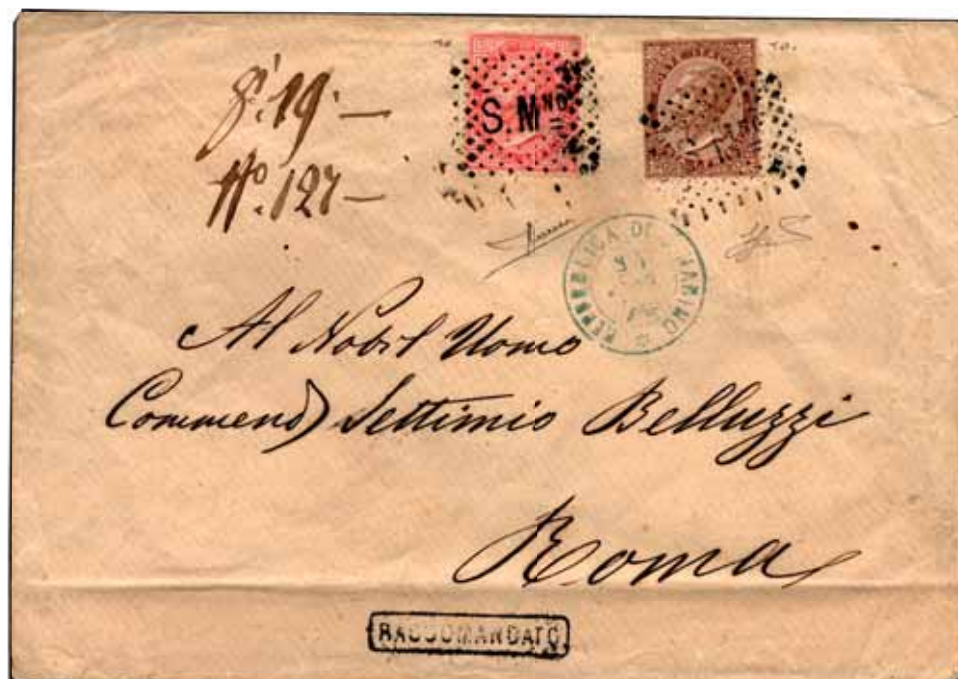 gr. 19. —
No. 127 —
S. Mno.
REPUBBLICA DI S. MARINO
Al Nobil Uomo
Commend) Settimio Belluzzi
Roma
RACCOMANDATO